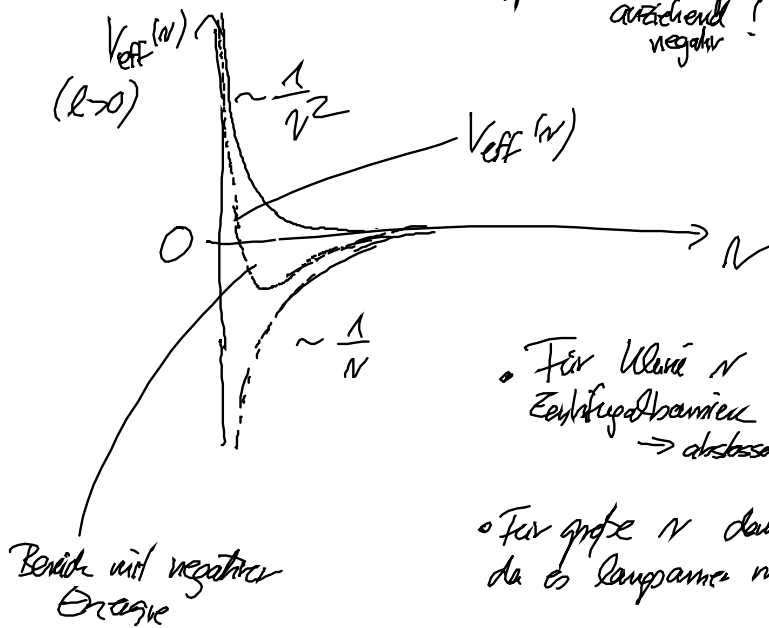 anziehend !
negativ
V_eff(r)
(l>0)
~ 1/r²
V_eff(r)
0
r
~ 1/r
• Für kleine r
Zentrifugalbarriere
→ abstoss
• Für große r
da es langsamer
Bereich mit negativer
Energie